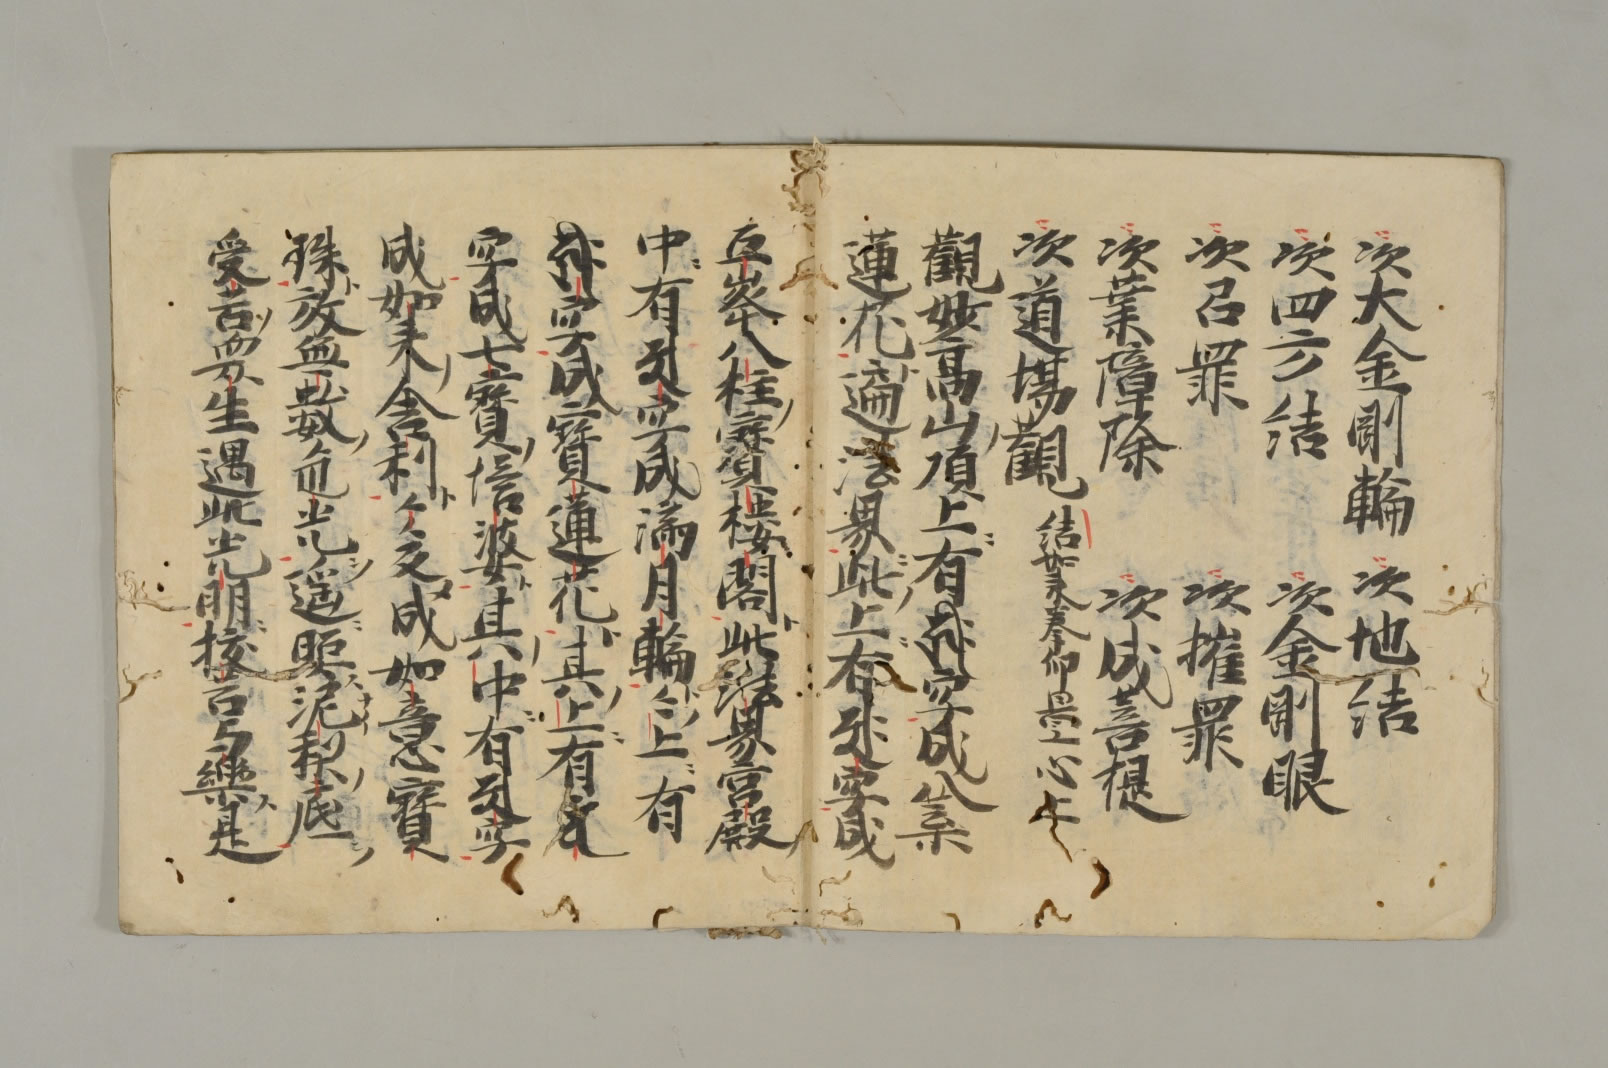 次大金剛輪 次地結
次四方結 次金剛眼
次召罪 次摧罪
次業障除 次成菩提
次道場觀 結如来拳仰置心上
觀妙高山頂上有 字成八葉
蓮花遍法界此上有 字成
五峯八柱寳楼閣此法界宮殿
中有 字成満月輪〻上有
字成寳蓮花其上有
字成七寳塔婆其中有 字
成如来舎利〻〻変成如意寳
珠放無数色光遥照泥梨底
受苦衆生遇此光明抜苦与樂是